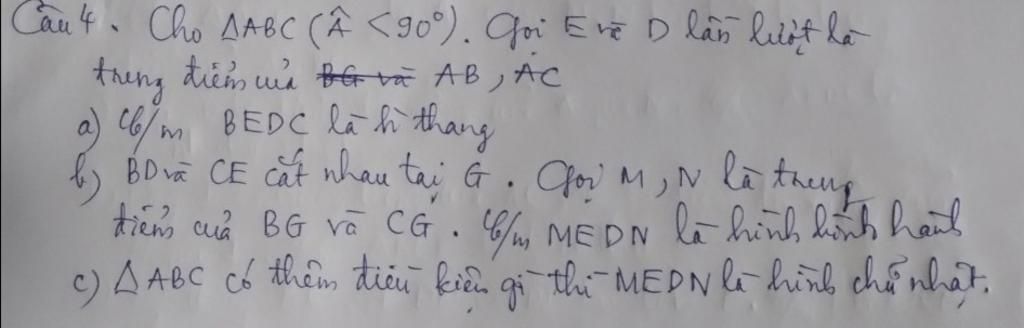 Câu 4. Cho ΔABC (Â < 90°). Gọi E và D lần lượt là
trung điểm của BG và AB, AC
a) C/m BEDC là h thang
b) BD và CE cắt nhau tại G. Gọi M, N là trung
điểm của BG và CG. C/m MEDN là hình bình hành
c) ΔABC có thêm điều kiện gì thì MEDN là hình chữ nhật.